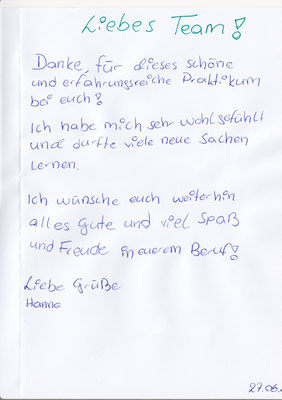 Liebes Team!
Danke, für dieses schöne
und erfahrungsreiche Praktikum
bei euch!
Ich habe mich sehr wohl gefühlt
und durfte viele neue Sachen
lernen.
Ich wünsche euch weiterhin
alles Gute und viel Spaß
und Freude in euerem Beruf!
Liebe Grüße
Hanna
27.06.